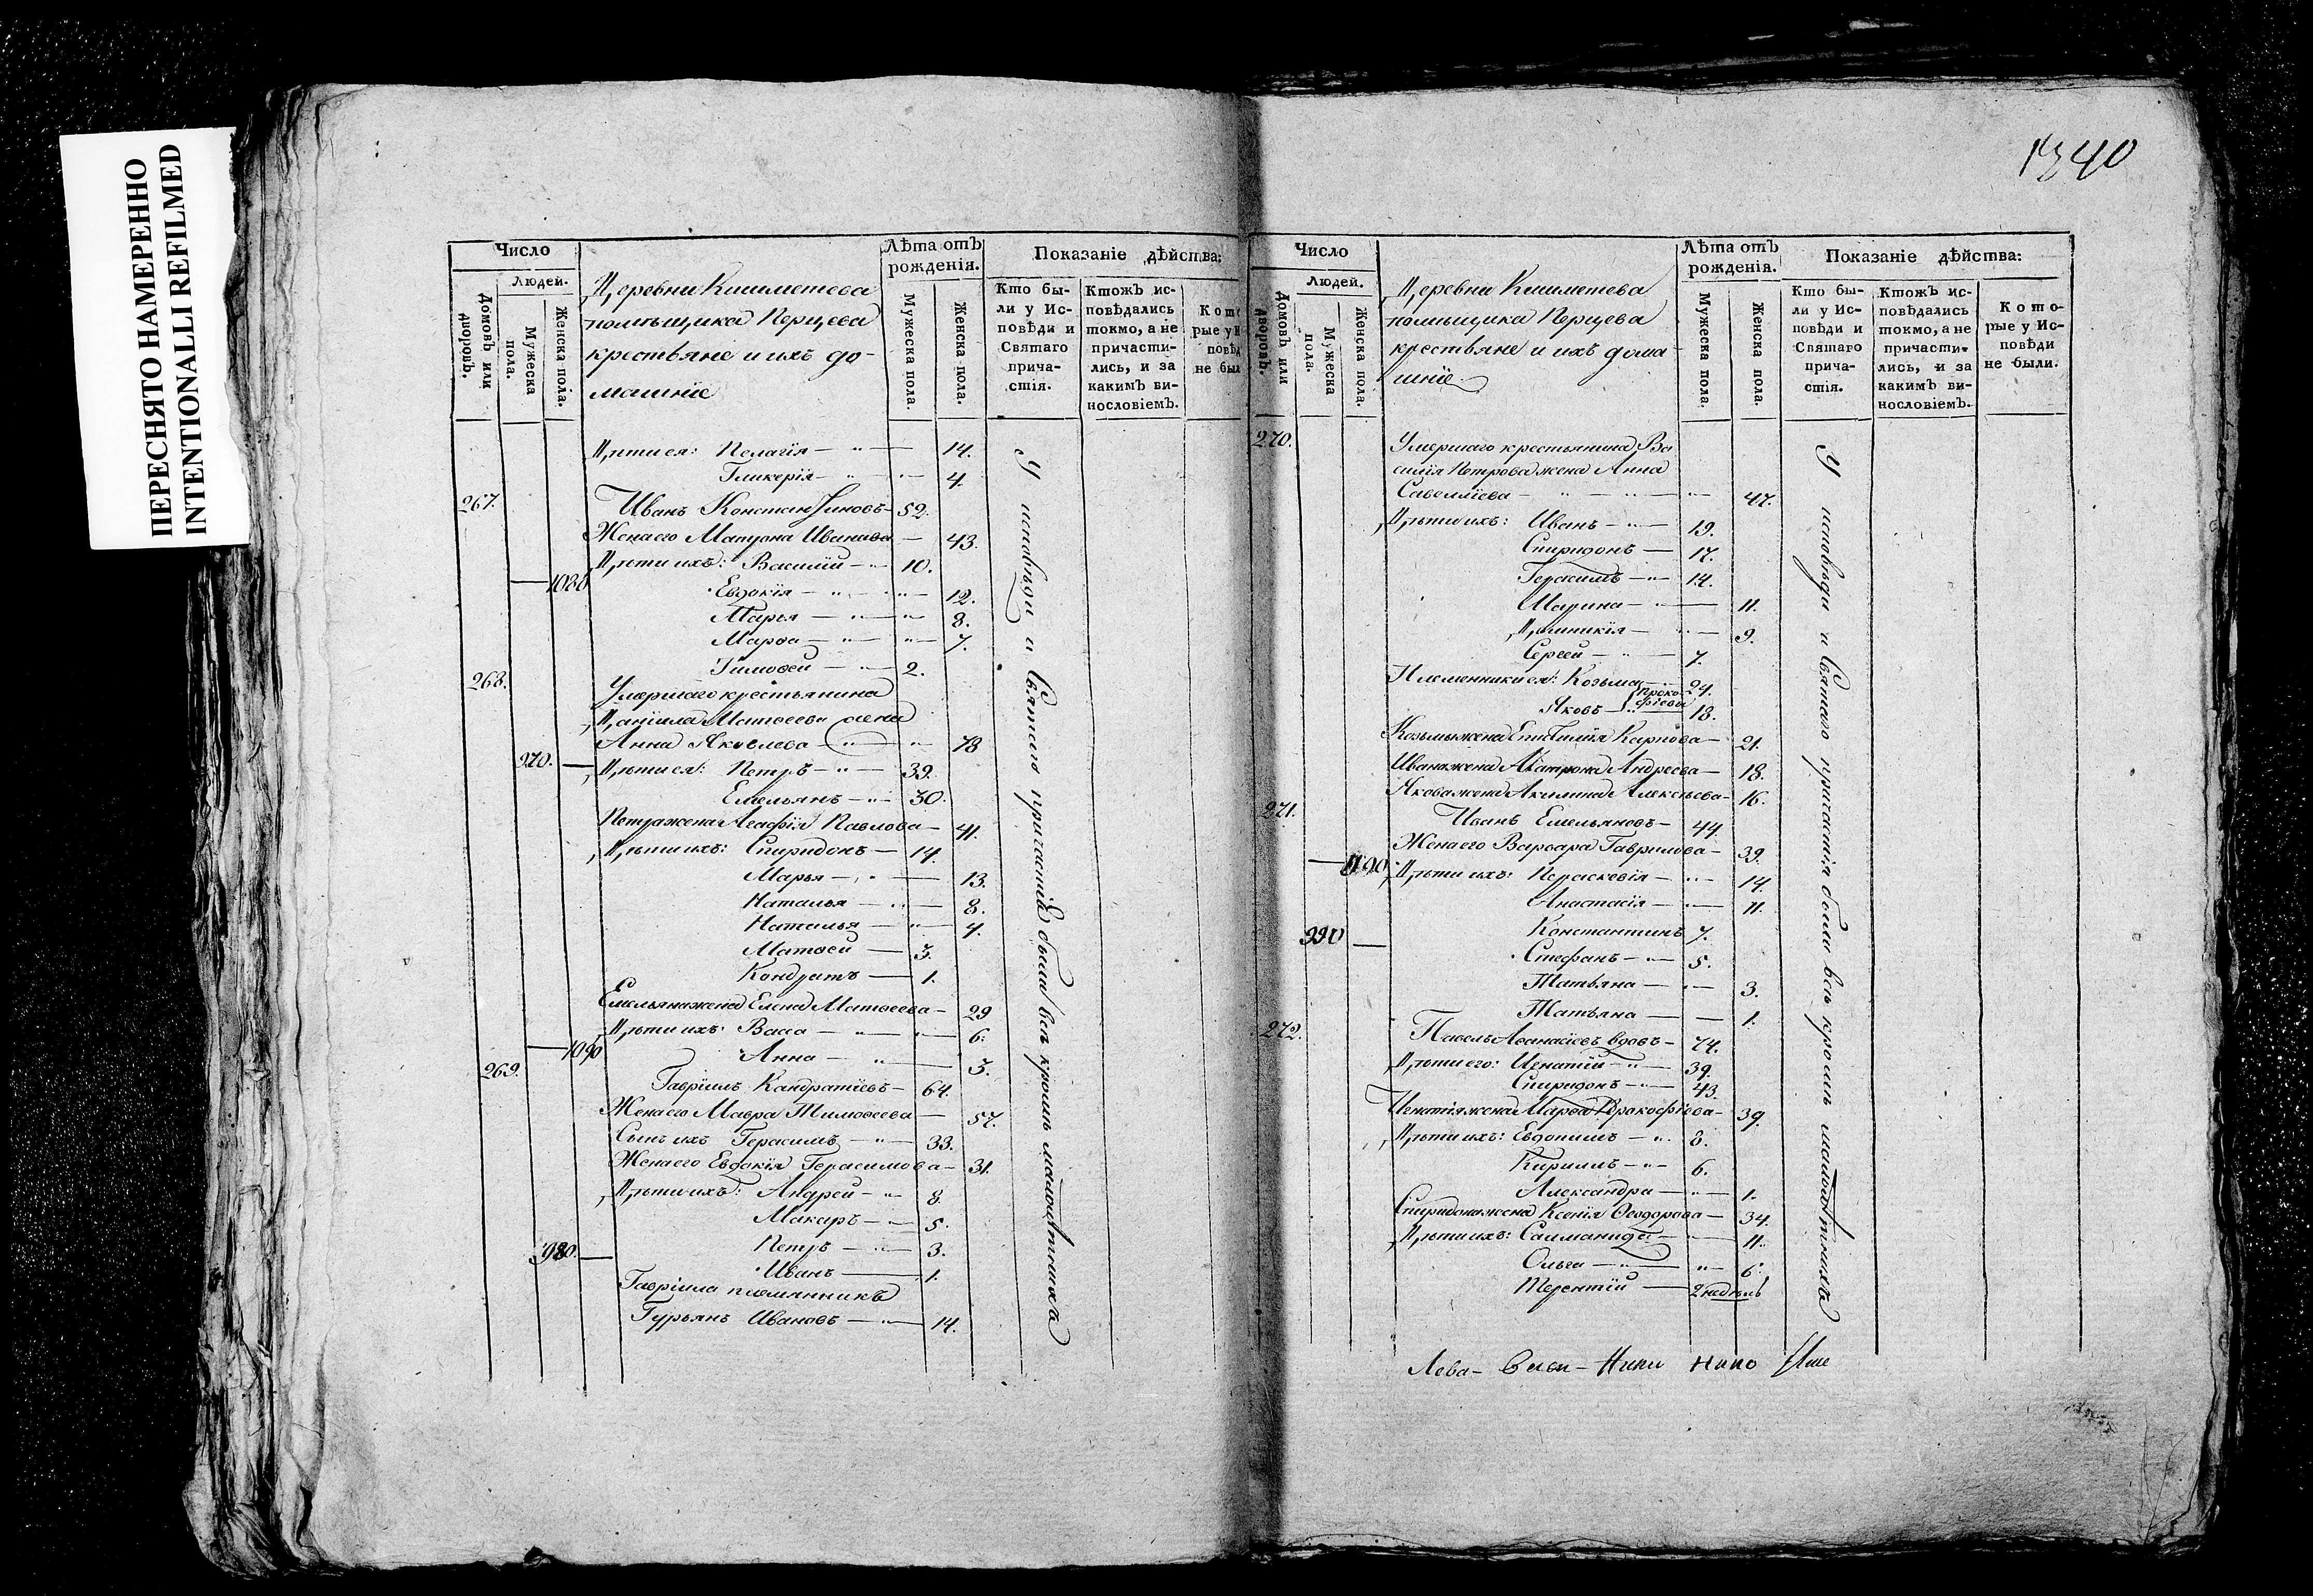 ПЕРЕСНЯТО НАМЕРЕННО
INTENTIONALLI REFILMED
Число
Людей.
Домовъ или дворовъ.
Мужеска пола.
Женска пола.
Деревни Кишметева
помѣщика Перцева
крестьяне и ихъ до-
машніе
Лѣта отъ рожденія.
Мужеска пола.
Женска пола.
Показаніе дѣйства:
Кто бы-
ли у Ис-
повѣди и
Святаго
прича-
стія.
Ктожъ ис-
повѣдались
токмо, а не
причасти-
лись, и за
какимъ ви-
нословіемъ.
Кото
рые у И
повѣд
не был
Дѣти ея: Пелагія 14.
Гликерія 4.
267. Иванъ Константиновъ 52.
Жена его Матрона Иванова 43.
Дѣти ихъ: Василій 10.
1080 Евдокія 12.
Марья 8.
Марѳа 7.
Тимоѳей 2.
268. Умершаго крестьянина
Даніила Матѳеева жена
Анна Яковлева 78
970. Дѣти ея: Петръ 39.
Емельянъ 30.
Петра жена Агафія Павлова 41.
Дѣти ихъ: Спиридонъ 14.
Марья 13.
Наталья 8.
Наталья 4.
Матѳей 3.
Кондратъ 1.
Емельяна жена Елена Матѳеева 29
Дѣти ихъ: Васса 6.
1090 Анна 3.
269. Гавріилъ Кандратіевъ 64.
Жена его Мавра Тимоѳеева 57.
Сынъ ихъ Герасимъ 33.
Жена его Евдокія Герасимова 31.
Дѣти ихъ: Андрей 8
Макаръ 5.
Петръ 3.
980. Иванъ 1.
Гавріила племянникъ
Гурьянъ Ивановъ 14.
У исповѣди и Святаго причастія были всѣ кромѣ малолѣтнихъ
1340
Число
Людей.
Домовъ или дворовъ.
Мужеска пола.
Женска пола.
Деревни Кишметева
помѣщика Перцева
крестьяне и ихъ дома
шніе
Лѣта отъ рожденія.
Мужеска пола.
Женска пола.
Показаніе дѣйства:
Кто бы-
ли у Ис-
повѣди и
Святаго
прича-
стія.
Ктожъ ис-
повѣдались
токмо, а не
причасти-
лись, и за
какимъ ви-
нословіемъ.
Кото-
рые у Ис-
повѣди
не были.
270. Умершаго крестьянина Ва
силія Петрова жена Анна
Савеліева 47.
Дѣти ихъ: Иванъ 19.
Спиридонъ 17.
Герасимъ 14.
Марина 11.
Домникія 9.
Сергей 7.
Племянники ея: Козьма 24.
Яковъ Проко-фіевы 18.
Козьмы жена Епистимія Карпова 21.
Ивана жена Матрона Андреева 18.
Якова жена Акилина Алексѣева 16.
271. Иванъ Емельяновъ 44.
Жена его Варвара Гаврилова 39.
1100 Дѣти ихъ: Параскевія 14.
Анастасія 11.
990 Константинъ 7.
Стефанъ 5.
Татьяна 3.
Татьяна 1.
272. Павелъ Аѳанасіевъ вдовъ 74.
Дѣти его: Игнатій 39.
Спиридонъ 43.
Игнатія жена Марѳа Прокофіева 39.
Дѣти ихъ: Евдокимъ 8.
Кирилъ 6.
Александра 1.
Спиридона жена Ксенія Ѳеодорова 34.
Дѣти ихъ: 11.
Ольга 6.
Терентій 2 недѣль
У исповѣди и Святаго причастія были всѣ кромѣ малолѣтнихъ